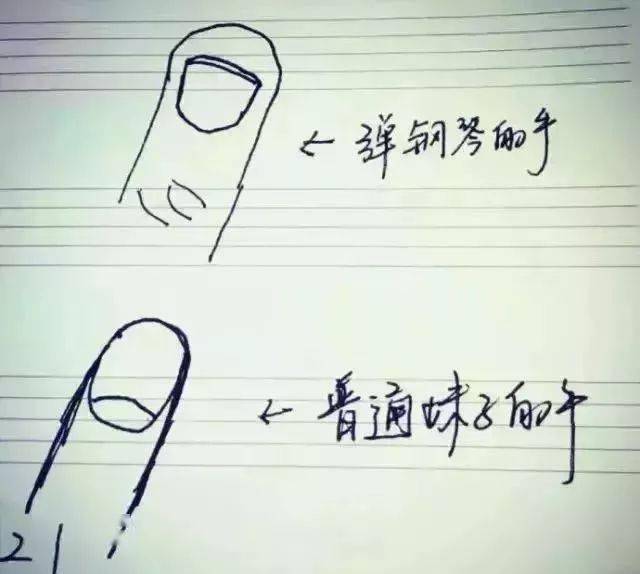 ← 弹钢琴的手
← 普通妹子的手
21